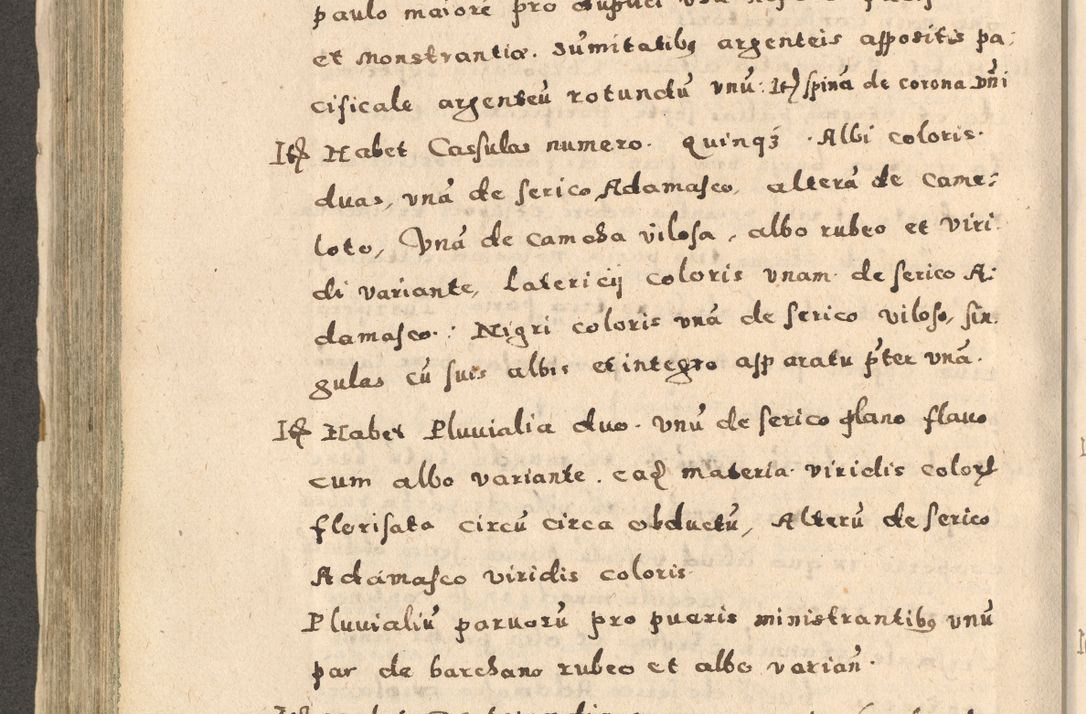 paulo maioré pro
et Monstrantia. Sum̃itatibq argenteis assositis pa:
cificale argenteū rotundū vnū. Itē spinā de corona Dn̄i
Itē Habet Cassulas numero. quinqȝ. Albi coloris.
duas, vnā de serico Adamasco, alterā de Came:
loto, Vnā de camoha vilosa, albo rubeo et viri
di variante, Latericij coloris vnam de serico A:
damasco. Nigri coloris vnā de serico viloso, sin:
gulas cū suis albis et integro apparatu p̄ter vnā.
Itē Habet Pluuialia duo. vnū de serico plano flauo
cum albo variante. materia viridis color
florisata circū circa obductū, Alterū de serico
Adamasco viridis coloris
Pluuialiū paruorū pro pueris ministrantibq vnū
par de barchano rubeo et albo varian̄.